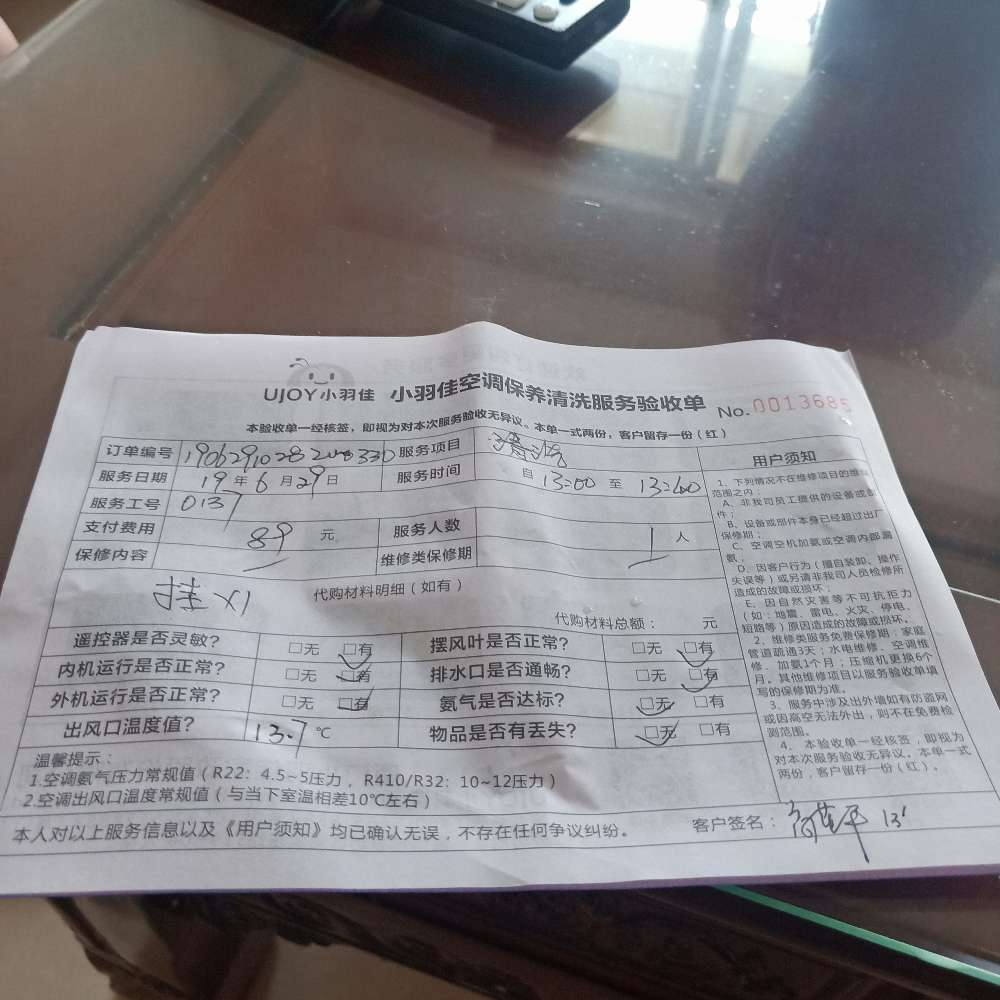 UJOY小羽佳 小羽佳空调保养清洗服务验收单 No.0013685
本验收单一经核签，即视为对本次服务验收无异议。本单一式两份，客户留存一份（红）
订单编号 服务项目 清洗
服务日期 19年6月29日 服务时间 自13:00至
服务工号 0137
支付费用 89 元 服务人数 1 人
保修内容 维修类保修期
挂X1 代购材料明细（如有）
代购材料总额： 元
遥控器是否灵敏? □无 □有 摆风叶是否正常? □无 □有
内机运行是否正常? □无 □有 排水口是否通畅? □无 □有
外机运行是否正常? □无 □有 氨气是否达标? □无 □有
出风口温度值? 13.7 ℃ 物品是否有丢失? □无 □有
温馨提示：
1.空调氨气压力常规值（R22：4.5~5压力，R410/R32：10~12压力）
2.空调出风口温度常规值（与当下室温相差10℃左右）
本人对以上服务信息以及《用户须知》均已确认无误，不存在任何争议纠纷。 客户签名：
用户须知
1、下列情况不在维修项目的维
范围之内：
A、非我司员工提供的设备或
件；
B、设备或部件本身已经超过出厂
保修期；
C、空调空机加氨或空调内部漏
氨；
D、因客户行为（擅自装卸、操作
失误等）或另请非我司人员检修所
造成的故障或损坏；
E、因自然灾害等不可抗拒力
（如：地震、雷电、火灾、停电、
短路等）原因造成的故障或损坏。
2、维修类服务免费保修期：家庭
管道疏通3天；水电维修、空调维
修、加氨1个月；压缩机更换6个
月。其他维修项目以服务验收单填
写的保修期为准。
3、服务中涉及出外墙如有防盗网
或因高空无法外出，则不在免费检
测范围。
4、本验收单一经核签，即视为
对本次服务验收无异议。本单一式
两份，客户留存一份（红）。